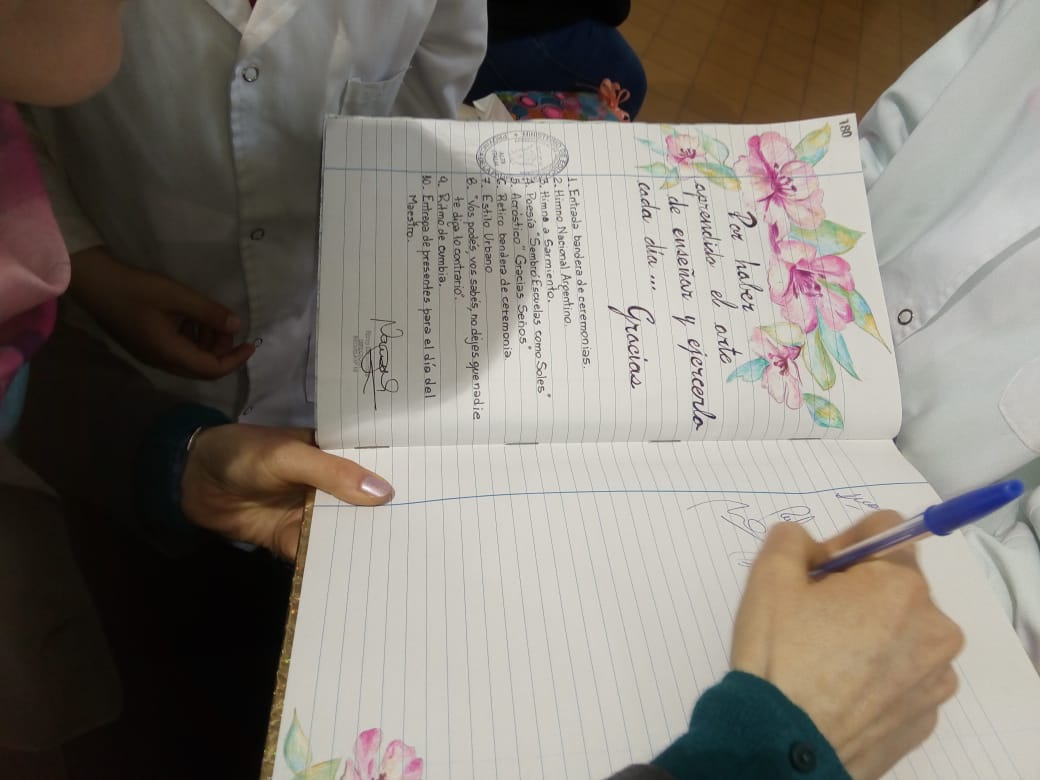 180
Por haber
aprendido el arte
de enseñar y ejercerlo
cada día... Gracias
1. Entrada bandera de ceremonias.
2. Himno Nacional Argentino.
3. Himno a Sarmiento.
4. Poesía "Sembró Escuelas como Soles"
5. Acróstico "Gracias Seños"
6. Retiro bandera de ceremonia
7. Estilo Urbano
8. "Vos podés, vos sabés, no dejes que nadie
te diga lo contrario".
9. Ritmo de cumbia.
10. Entrega de presentes para el día del
Maestro.